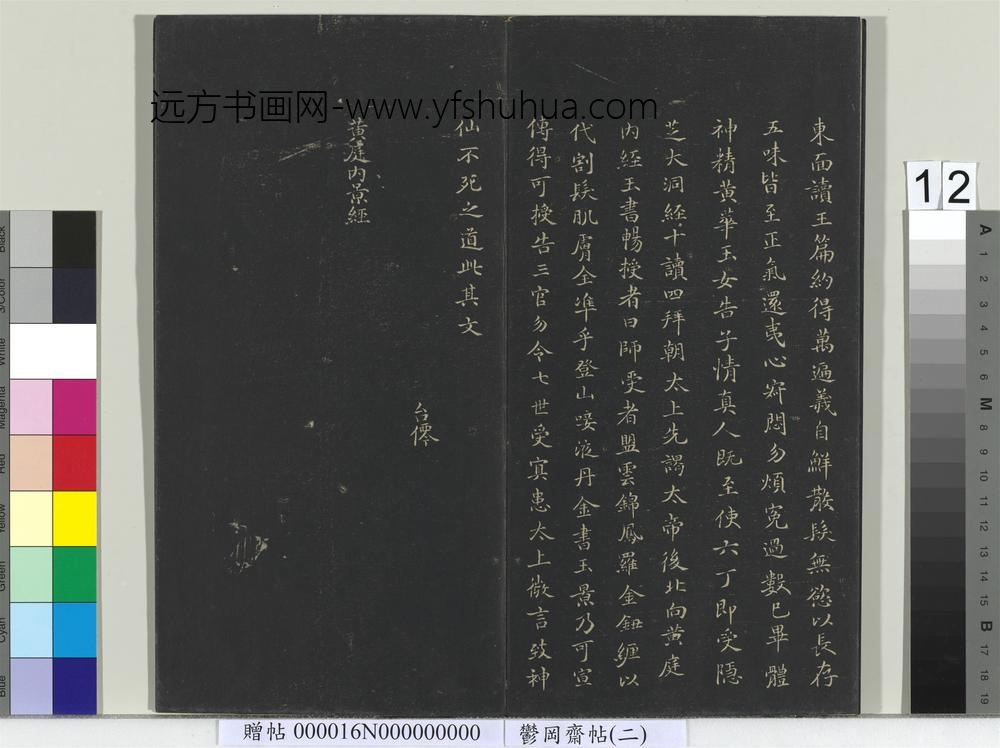 远方书画网-www.yfshuhua.com
東面讀玉篇約得萬遍義自鮮散髮無慾以長存
五味皆至正氣還夷心寂悶勿煩冤過數已畢體
神精黃華玉女告子情真人既至使六丁即受隱
芝大洞經十讀四拜朝太上先謁太帝後北向黃庭
內經玉書暢授者曰師受者盟雲錦鳳羅金鈕纏以
代割髮肌膚全準乎登山唼液丹金書玉景乃可宣
傳得可授告三官勿令七世受冥患太上微言致神
仙不死之道此其文
台僊
黃庭內景經
12
Black
3/Color
White
Magenta
Red
Yellow
Green
Cyan
Blue
A
1
2
3
4
5
6
M
8
9
10
11
12
13
14
15
B
17
18
19
贈帖 000016N000000000
鬱岡齋帖(二)